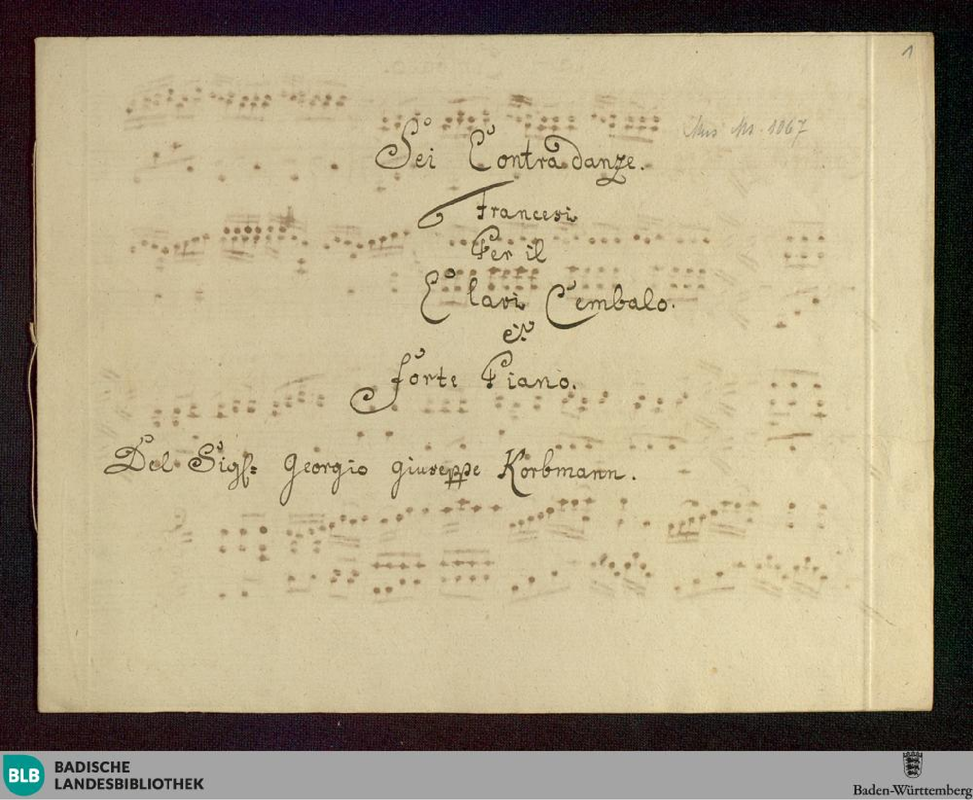 1
Mus. Ms. 1067
Sei Contradanze.
Francesi
Per il
Clavi Cembalo.
et
forte Piano.
Del Sigr: Georgio giuseppe Korbmann.
BLB
BADISCHE
LANDESBIBLIOTHEK
Baden-Württemberg